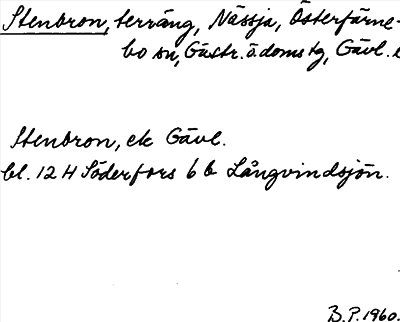 Stenbron, terräng, Nässja, Österfärne-
bo sn, Gästr. ö. domstg, Gävl.
Stenbron, ek Gävl.
bl. 12 H Söderfors 6 b Långvindsjön.
B.P. 1960.